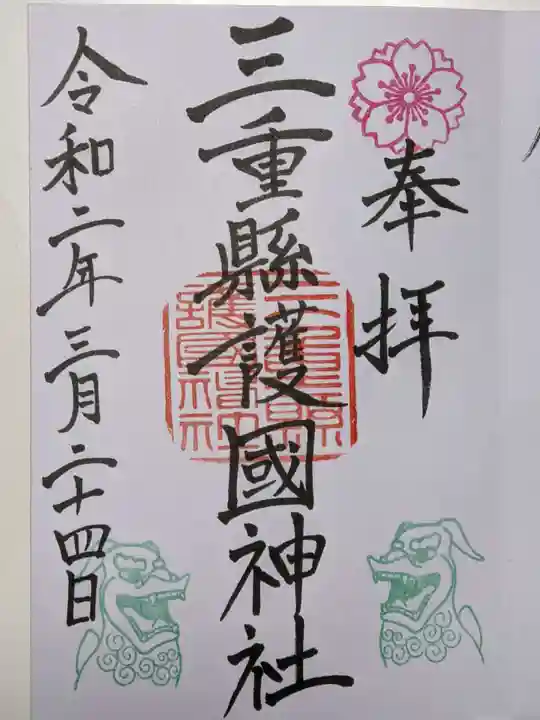 奉拝
三重縣護國神社
三重縣護國神社
令和二年三月二十四日